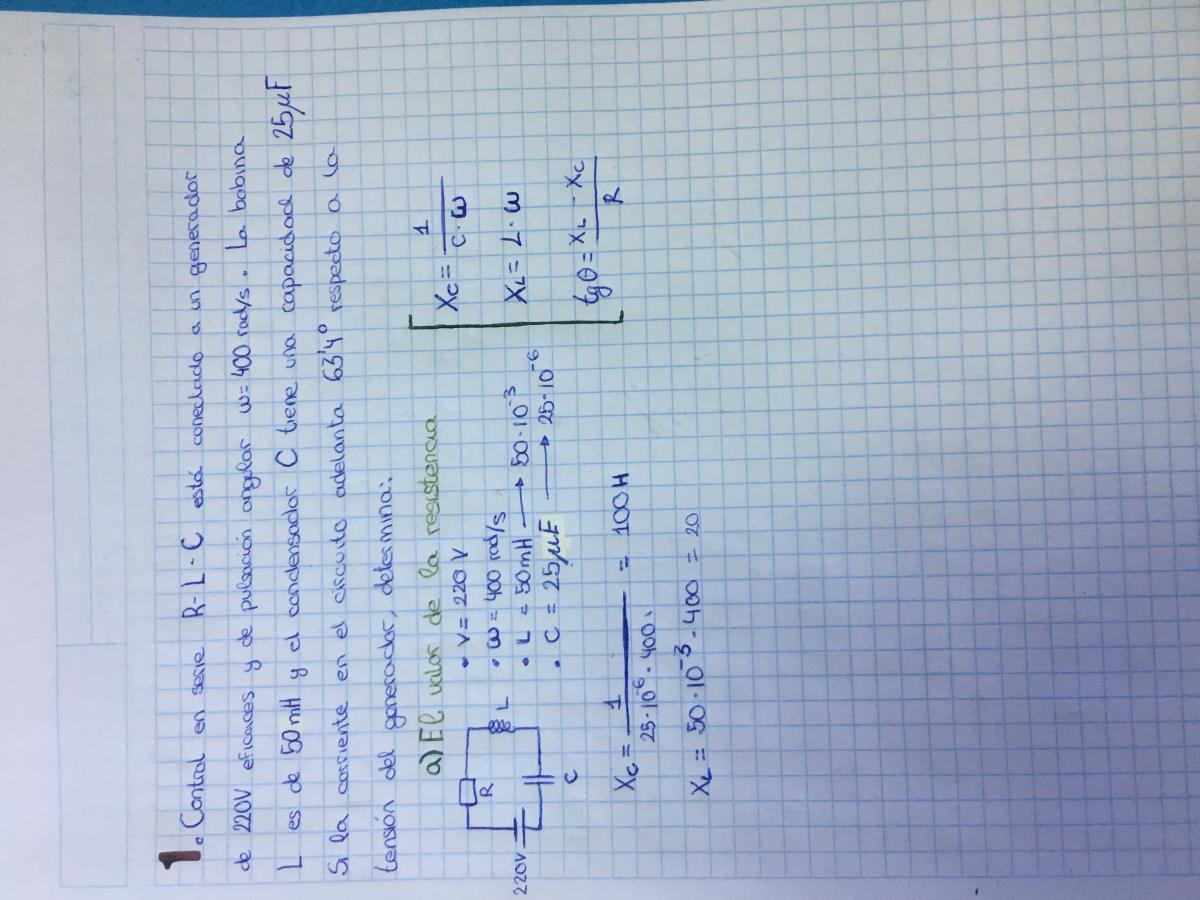 1. Control en serie R-L-C está conectado a un generador
de 220V eficaces y de pulsación angular ω=400 rad/s. La bobina
L es de 50mH y el condensador C tiene una capacidad de 25μF
Si la corriente en el circuito adelanta 63'4° respecto a la
tensión del generador, determina:
a) El valor de la resistencia
220V
R
L
C
• V = 220 V
• ω = 400 rad/s
• L = 50mH → 50·10⁻³
• C = 25μF → 25·10⁻⁶
Xc = 1 / C·ω
XL = L·ω
tgθ = XL - Xc / R
Xc = 1 / 25·10⁻⁶·400. = 100H
XL = 50·10⁻³·400 = 20